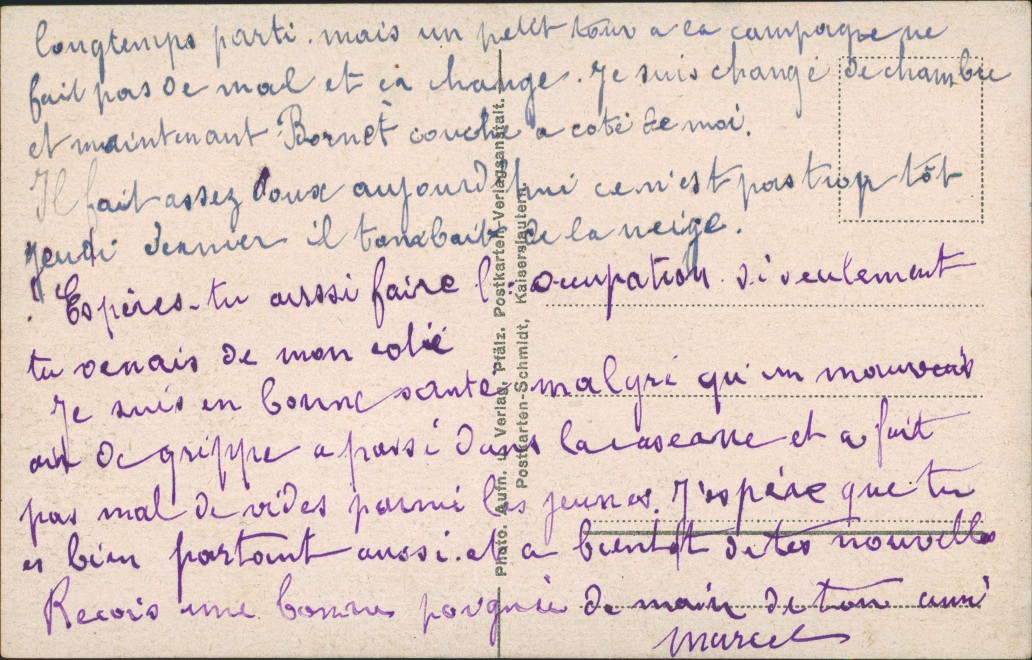 longtemps parti. mais un petit tour a la campagne ne
fait pas de mal et ça change. Je suis changé de chambre
et maintenant Bornet couche a coté de moi.
Il fait assez doux aujourd'hui ce n'est pas trop tôt
jeudi dernier il tombait de la neige.
Espères-tu aussi faire l'occupation. si seulement
tu venais de mon coté
Je suis en bonne santé malgré qu'un mauvais
air de grippe a passé dans la caserne et a fait
pas mal de vides parmi les jeunes. J'espère que tu
es bien portant aussi. et a bientot de tes nouvelles
Recois une bonne poignée de main de ton ami
Marcel
Photo. Aufn. u. Verlag, Pfälz. Postkarten-Verlagsanstalt.
Postkarten-Schmidt, Kaiserslautern.